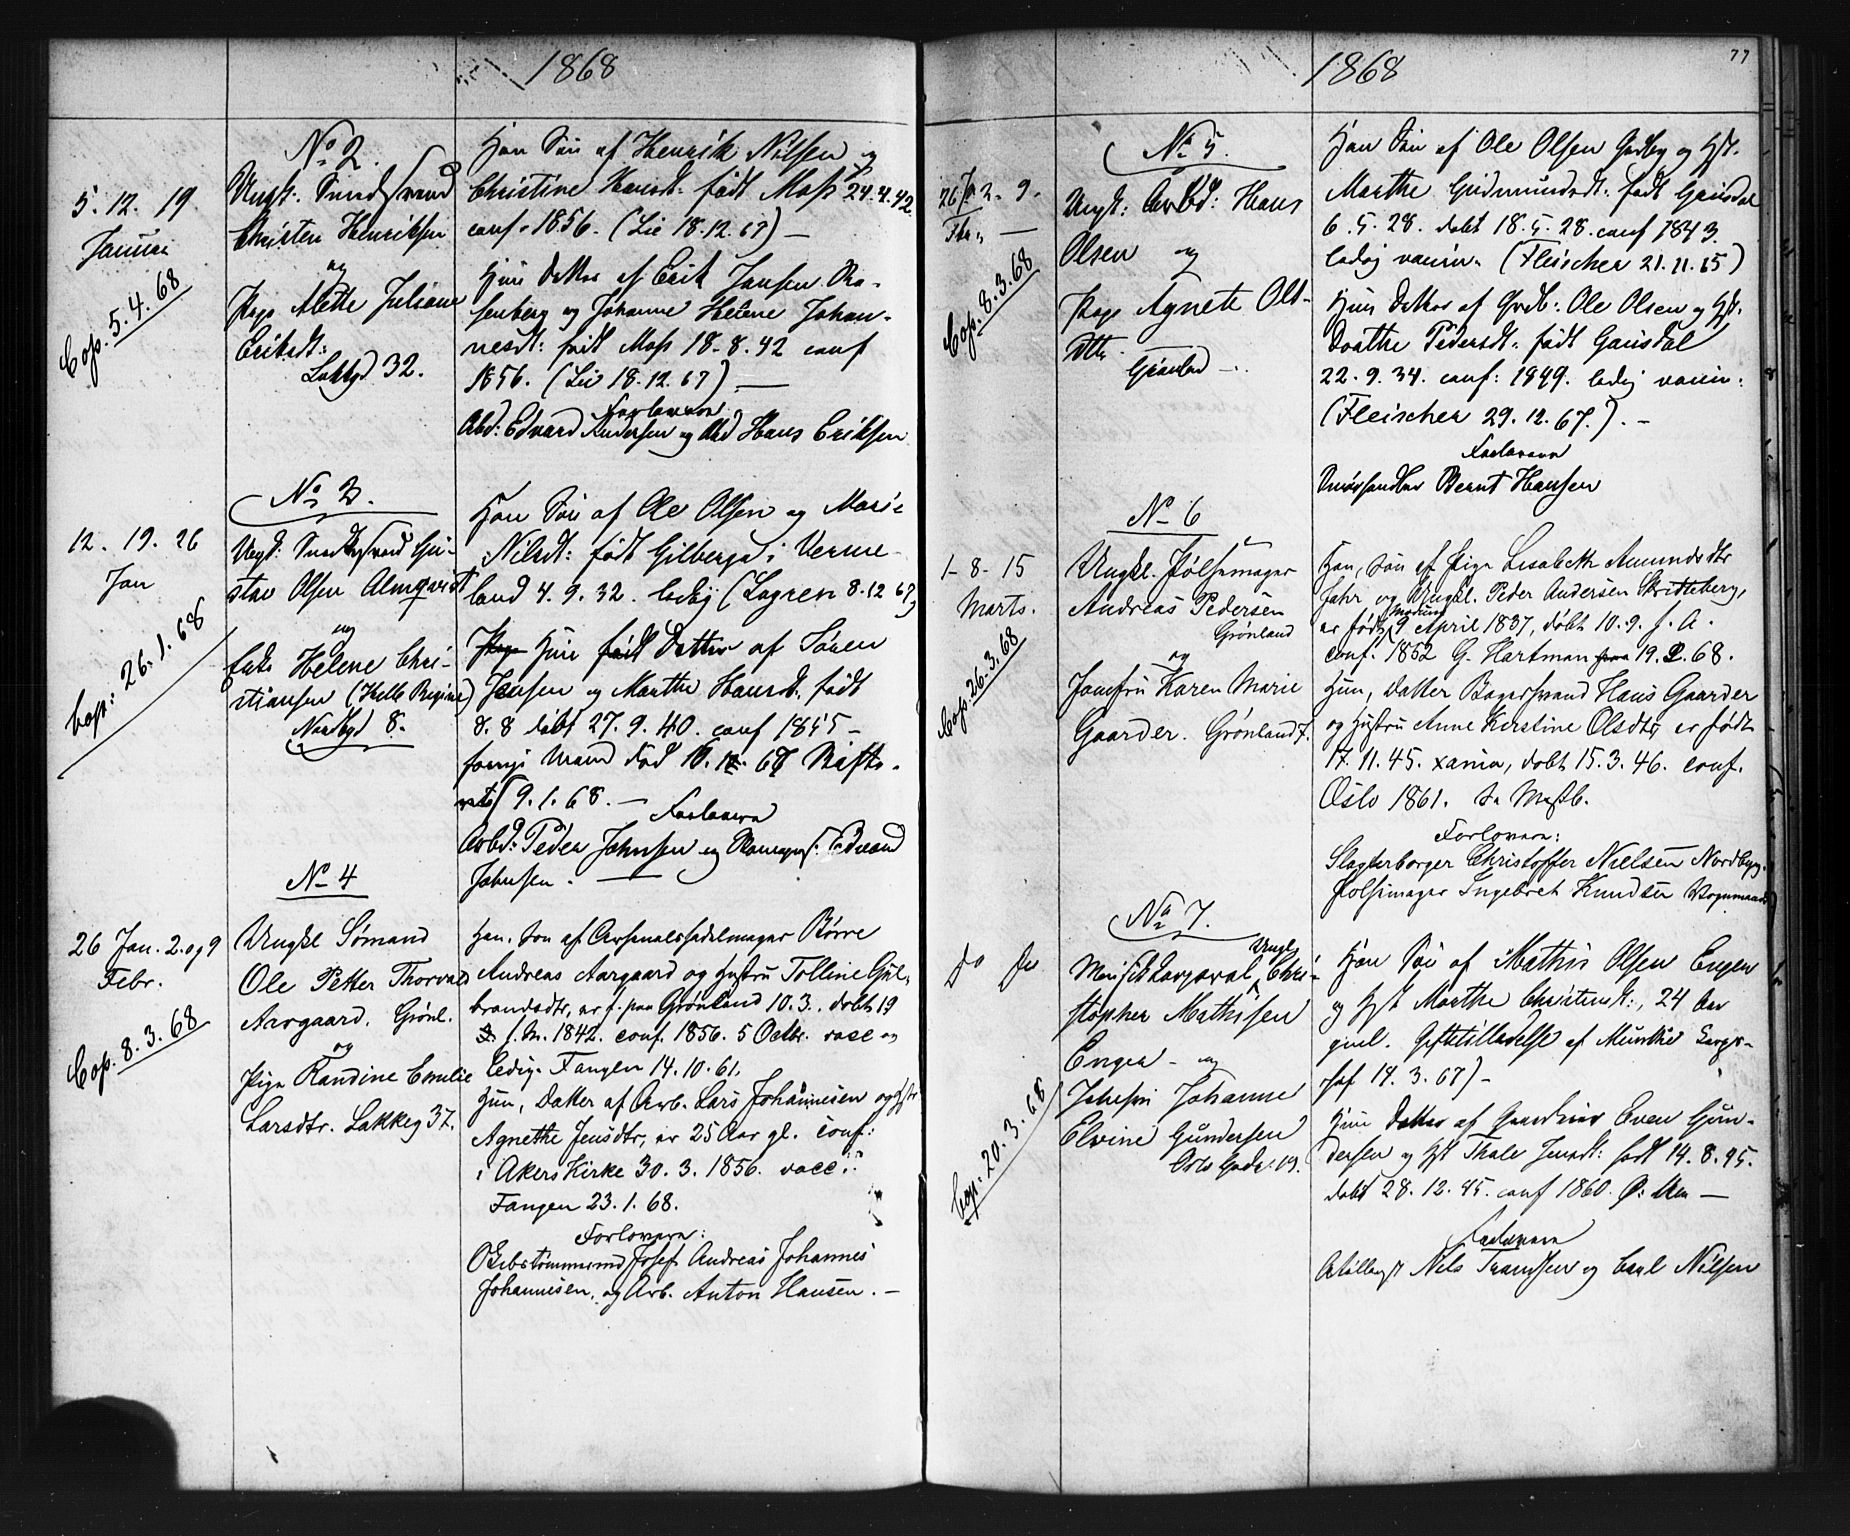 1868
No 2.
5. 12. 19
Januar
Cop. 5.4.68
Ungk: Smedsvend
Christen Henriksen
og
Pige Alette Juliane
Eriksdt:
Lakkgd 32.
Han Søn af Henrik Nilsen og
Christine Hansdt: født Moss 24.4.42.
conf. 1856. (Lie 18.12.67) —
Hun Datter af Erik Jansen Ro-
senberg og Johanne Helene Johan-
nesdt: født Moss 18.8.42 conf
1856. (Lie 18.12.67) —
Forlovere
Abd: Edvard Andersen og Abd Hans Eriksen
No 3.
12. 19. 26
Jan
Cop: 26.1.68
Ungk: Smedsvend Gu-
stav Olsen Almqvist
og
Enke Helene Chri-
stiansen (Helle Regine)
Nordbyd 8.
Han Søn af Ole Olsen og Marie
Nilsdt: født Gilberga i Verme-
land 4.9.32. ledig (Lagren 8.12 67)
Pige Hun født Datter af Søren
Jensen og Marthe Hansdt. født
8.8 døbt 27.9.40. conf 1855 -
forrige Mand død 10.12.67 Skifte-
ret 9.1.68. —
Forlovere
Arbd: Peder Johnsen og Edvard
Johnsen. —
No 4
26 Jan. 2. og 9
Febr.
Cop. 8.3.68
Ungkl Sømand
Ole Petter Thorvald
Aargaard. Grønl.
og
Pige Randine Emilie
Larsdtr. Lakkeg 37.
Han, Søn af Arsenalssadelmager Børre
Andreas Aargaard og Hustru Tolline Gul-
brandsdtr, er f. paa Grønland 10.3. døbt 19
f. M. 1842. conf. 1856. 5 Octbr. vacc og
ledig. Fangen 14.10.61.
Hun, Datter af Arb. Lars Johannesen og Hstr
Agnethe Jensdtr, er 25 Aar gl. conf:
i Akers Kirke 30.3.1856. vacc:
Fangen 23.1.68.
Forlovere:
Josef Andreas Johannes
Johannesen, og Arb. Anton Hansen. —
1868
77
No 5.
26 Jan 2. 9.
Feb. —
Cop. 8.3.68
Ungk: Arbd: Hans
Olsen og
Pige Agnete Ols-
dtr.
Grønland -.
Han Søn af Ole Olsen Godby og Hst.
Marthe Gudmundsdt: født Gausdal
6.5.28. døbt 18.5.28. conf 1843.
ledig vaccin. (Fleischer 21.11.65)
Hun Datter af Grdb: Ole Olsen og Hst.
Dorthe Pedersdt. født Gausdal
22.9.34. conf: 1849. ledig vaccin:
(Fleischer 29.12.67.). -
Forlovere
Smørhandler Bernt Hansen
No 6
1- 8- 15
Marts.
Cop. 26.3.68
Ungkl. Pølsemager
Andreas Pedersen
Grønland
og
Jomfru Karen Marie
Gaarder. Grønland 7.
Han, Søn af Pige Lisabeth Amundsdtr
Fahr og Ungkl. Peder Andersen Skritteberg,
er født Modum 9 April 1837, døbt 10.9. s. A.
conf. 1852 G. Hartman 19.2.68.
Hun, Datter Bagersvend Hans Gaarder
og Hustru Anne Kirstine Olsdtr er født
17.11.45. xania, døbt 15.3.46. conf.
Oslo 1861.
Forlovere:
Slagterborger Christoffer Nielsen Nordbyg.
Pølsemager Ingebret Knudsen
No 7.
Do Do
Cop: 20.3.68
Ungkl
Musik Korporal, Chri-
stopher Mathisen
Engen - og
Jomfru Johanne
Elvine Gundersen
Oslo Gade 19.
Han Søn af Mathis Olsen Engen
og Hst Marthe Christensdt:, 24 Aar
gml. Giftetilladelse af Munthe
14.3.67) -
Hun Datter af Even Gun-
dersen og Hst Thale Jensdt: født 14.8.45.
døbt 28.12.45. conf 1860. —
Forlovere
Nils og Carl Nilsen